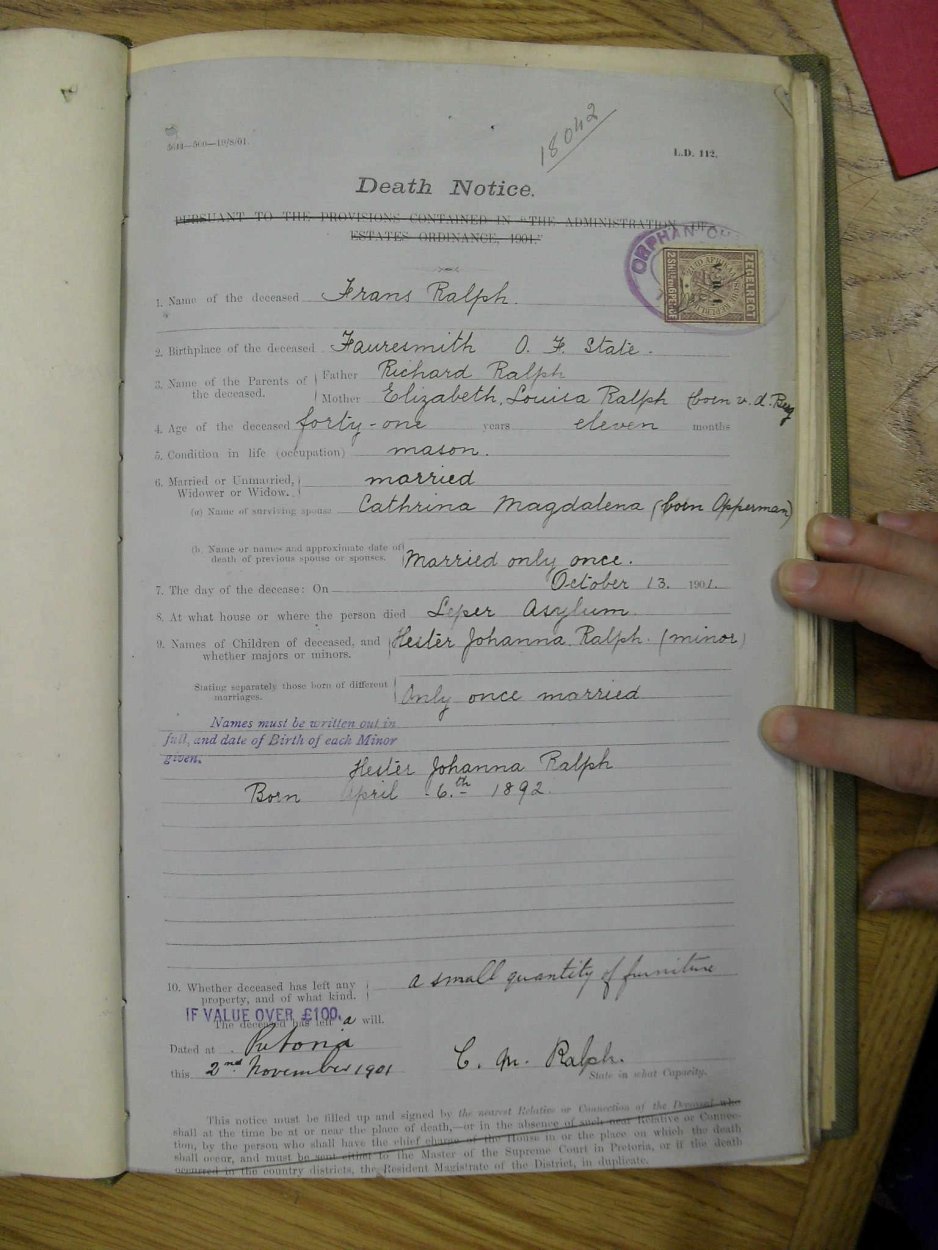 18042
5644—500—19/8/01.
L.D. 112.
Death Notice.
PURSUANT TO THE PROVISIONS CONTAINED IN "THE ADMINISTRATION OF
ESTATES ORDINANCE, 1901."
ORPHAN
ZEGELREGT
V.R.I.
1. Name of the deceased Frans Ralph.
2. Birthplace of the deceased Fauresmith O. F. State.
3. Name of the Parents of the deceased. Father Richard Ralph
Mother Elizabeth, Louisa Ralph (born v. d. Berg
4. Age of the deceased forty-one years eleven months
5. Condition in life (occupation) mason.
6. Married or Unmarried, Widower or Widow. married
(a) Name of surviving spouse Cathrina Magdalena (born Opperman)
(b. Name or names and approximate date of death of previous spouse or spouses. Married only once.
7. The day of the decease: On October 13. 1901.
8. At what house or where the person died Leper Asylum.
9. Names of Children of deceased, and whether majors or minors. Hester Johanna Ralph. (minor)
Stating separately those born of different marriages. Only once married
Names must be written out in
full, and date of Birth of each Minor
given.
Hester Johanna Ralph
Born April 6.th 1892.
10. Whether deceased has left any property, and of what kind. a small quantity of furniture
IF VALUE OVER £100.
The deceased has left a will.
Dated at Pretoria
this 2nd November 1901 C. M. Ralph.
State in what Capacity.
This notice must be filled up and signed by the nearest Relative or Connection of the Deceased who
shall at the time be at or near the place of death,—or in the absence of such near Relative or Connec-
tion, by the person who shall have the chief charge of the House in or the place on which the death
shall occur, and must be sent either to the Master of the Supreme Court in Pretoria, or if the death
occurred in the country districts, the Resident Magistrate of the District, in duplicate.